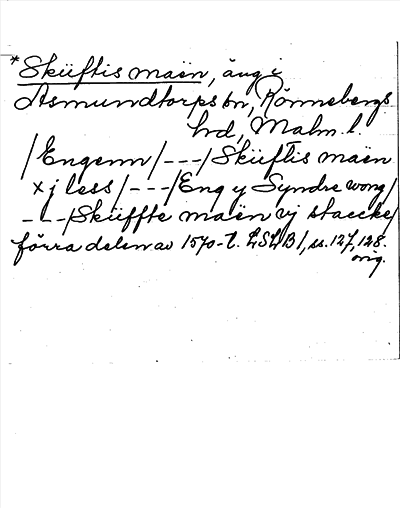 *Sküftis maën, äng i
Asmundtorps sn, Rönnebergs
hd, Malm. l.
/Engenn/---/Sküftis maën
xj less/---/Eng y Syndre wong/
---/Sküffte maën vj staecke/
förra delen av 1570-t. LSLB1, ss. 127, 128.
orig.